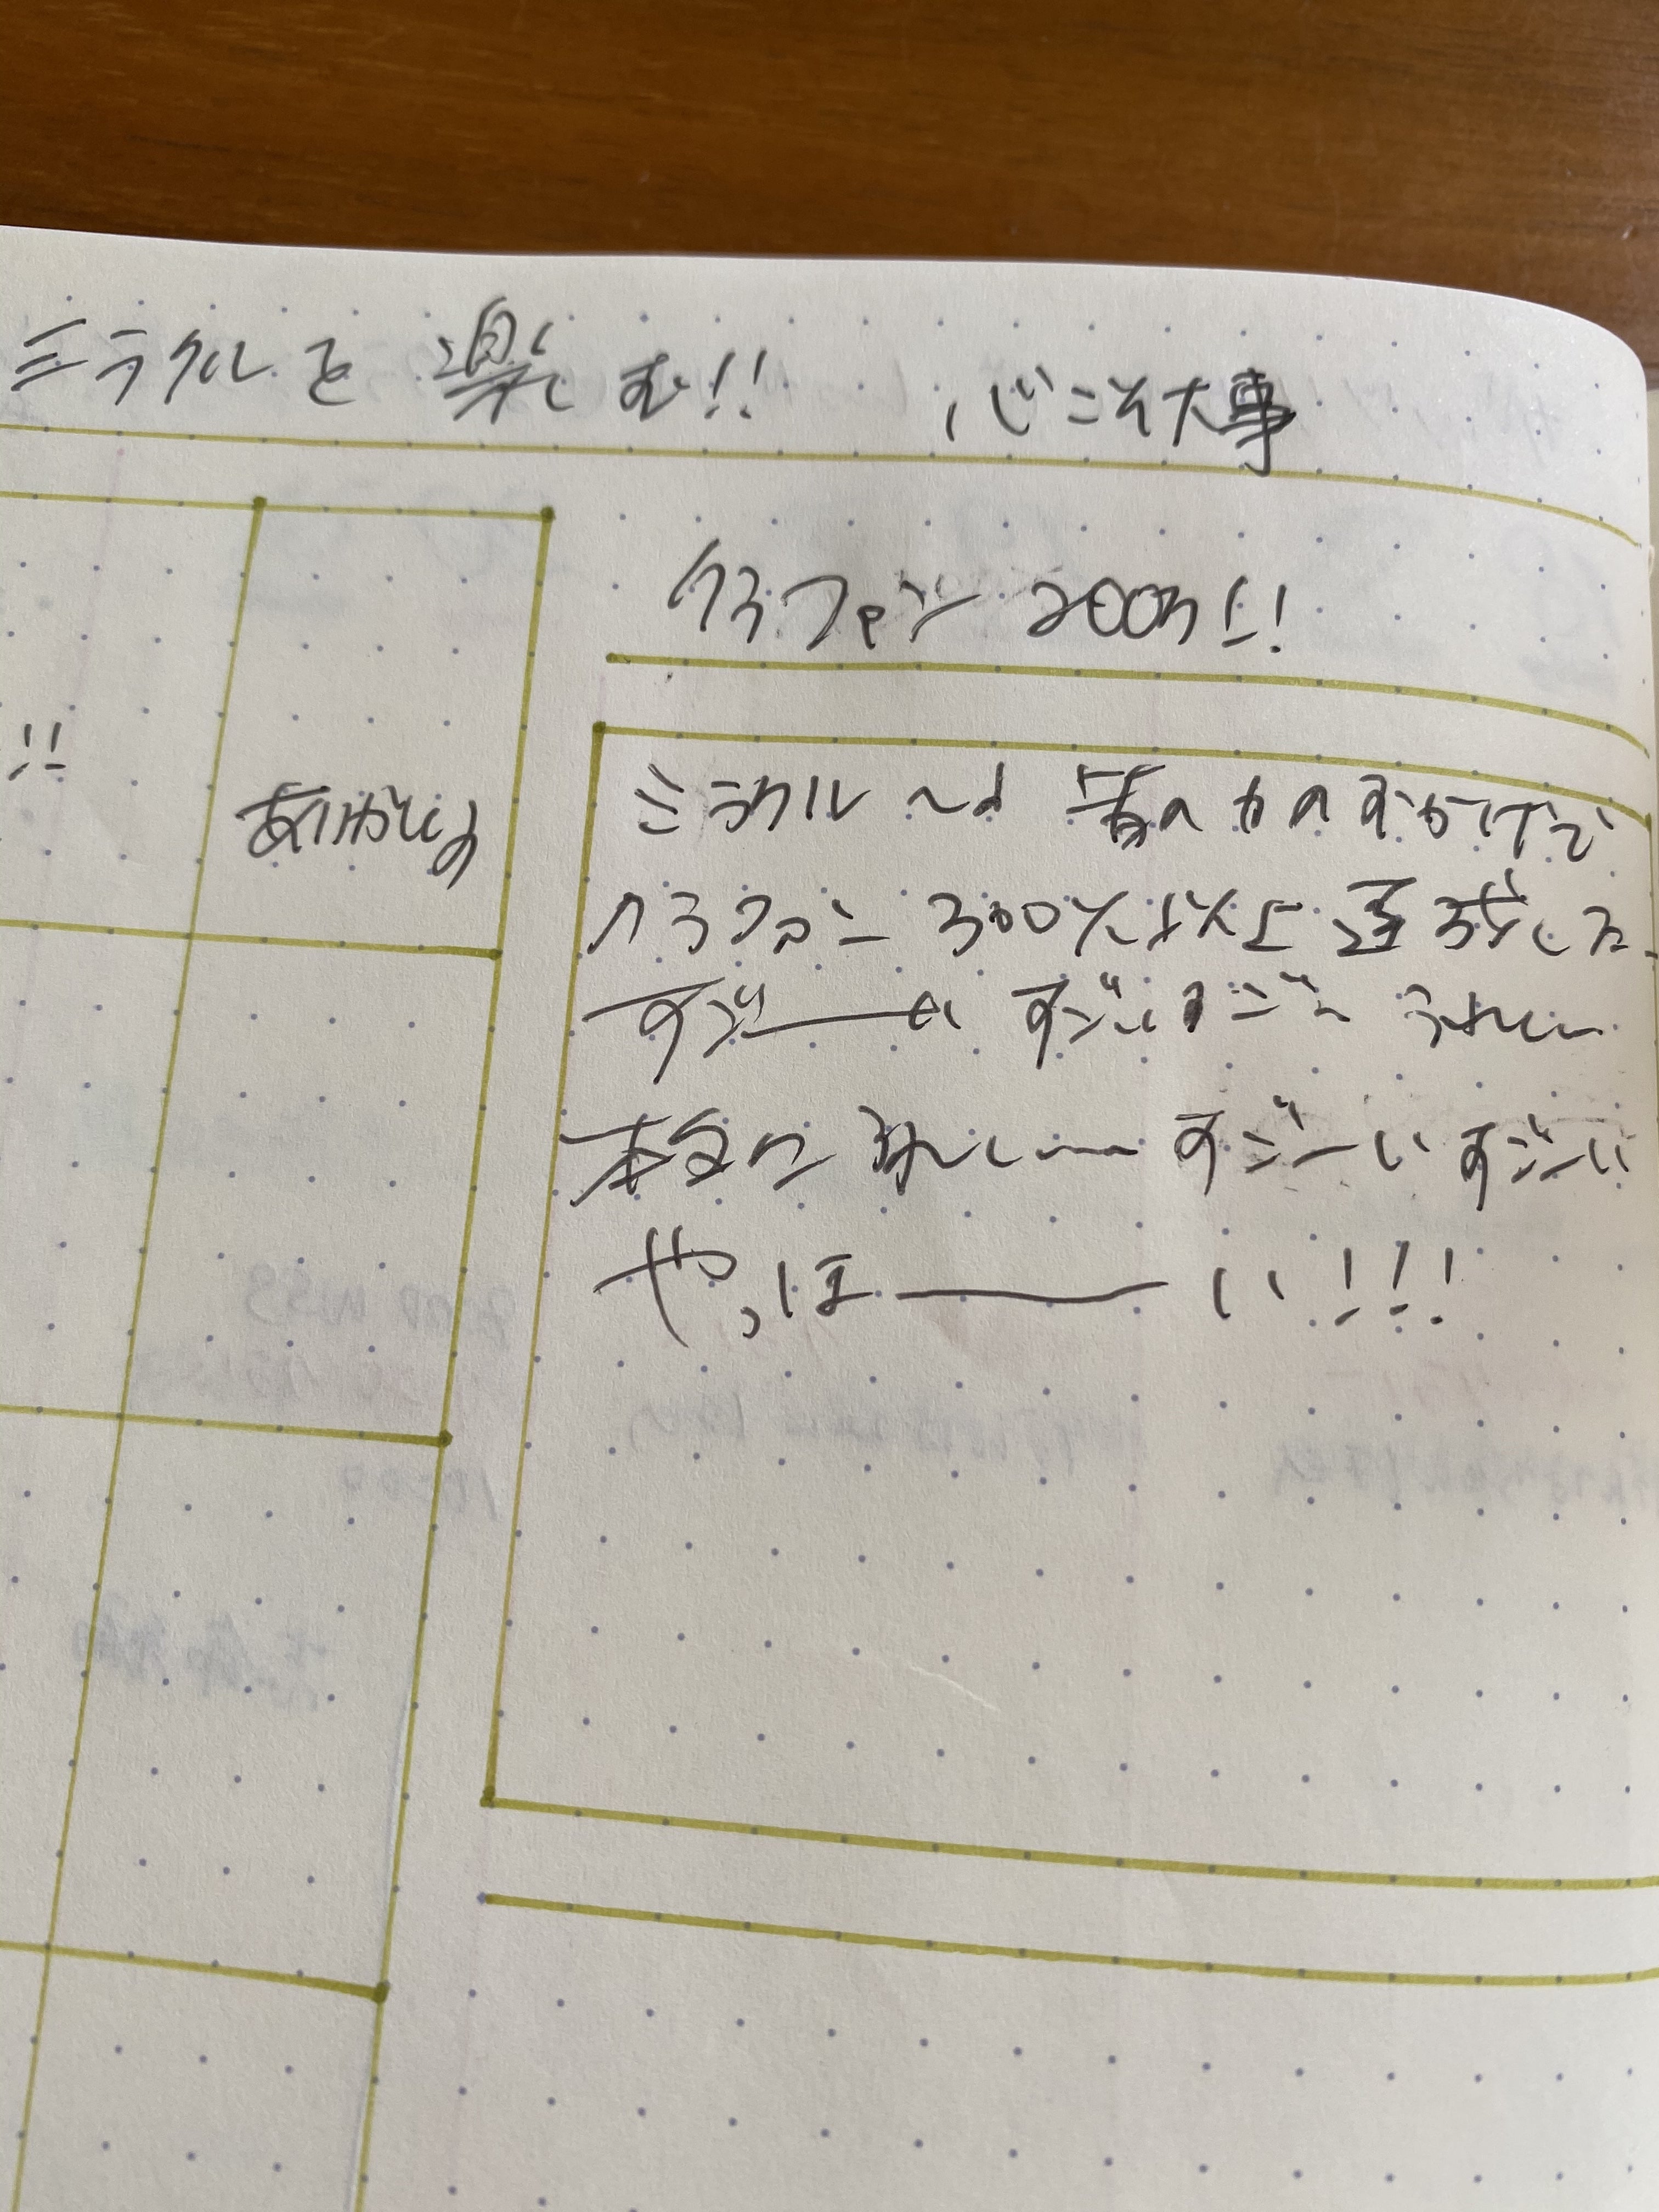 ミラクルを楽しむ!! 心こそ大事
クラファン 200万!!
!!
ありがとう
ミラクル 皆の力のおかげで
クラファン 300%以上達成した
すご うれしい
本当に うれしいーー すごーい すごーい
やっほーーい!!!